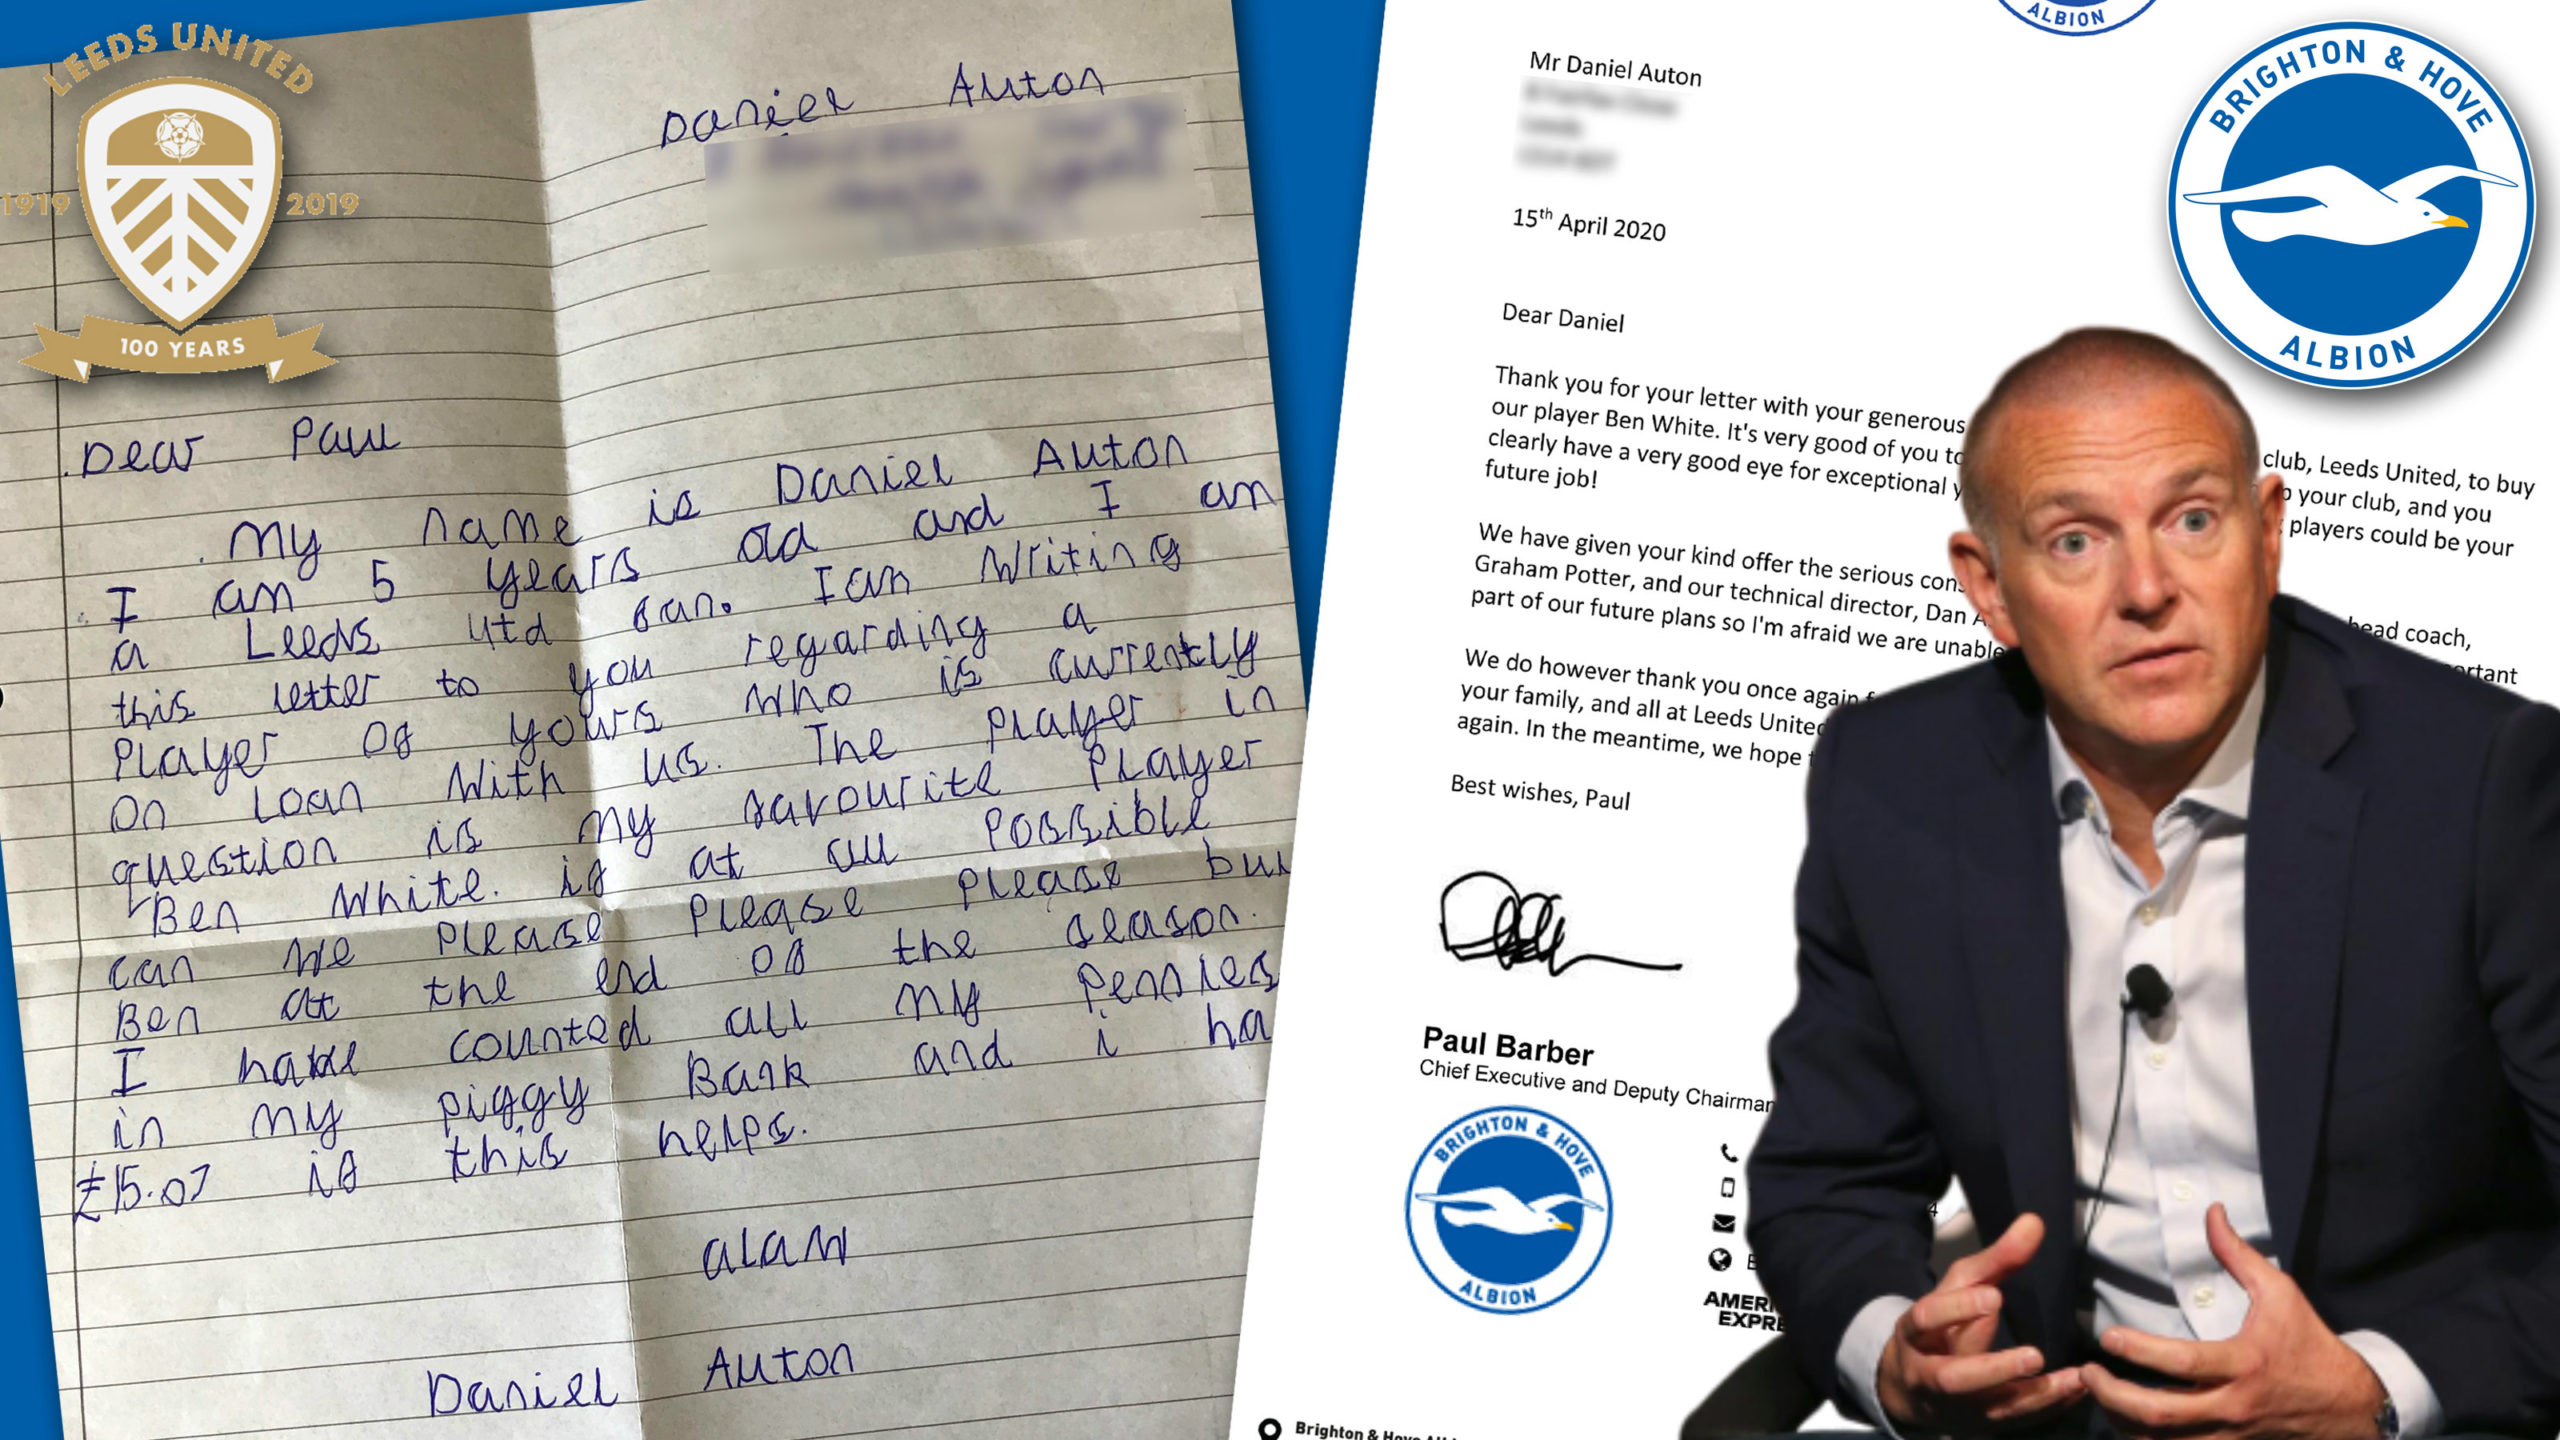 LEEDS UNITED
1919 2019
100 YEARS
Daniel Auton
Dear Paul
My name is Daniel Auton
I am 5 years old and I am
a Leeds utd fan. I am writing
this letter to you regarding a
Player of yours who is currently
on loan with us. The player in
question is my favourite player
Ben White. if at all possible
can we please please please buy
Ben at the end of the season.
I have counted all my pennies
in my piggy Bank and i ha
£15.07 if this helps.
alaw
Daniel Auton
ALBION
Mr Daniel Auton
15th April 2020
Dear Daniel
Thank you for your letter with your generous club, Leeds United, to buy
our player Ben White. It's very good of you to your club, and you
clearly have a very good eye for exceptional players could be your
future job!
We have given your kind offer the serious head coach,
Graham Potter, and our technical director, Dan
part of our future plans so I'm afraid we are unable
We do however thank you once again
your family, and all at Leeds United
again. In the meantime, we hope
Best wishes, Paul
Paul Barber
Chief Executive and Deputy Chairman
BRIGHTON & HOVE
ALBION
AMERI
EXPRE
Brighton & Hove
BRIGHTON & HOVE
ALBION